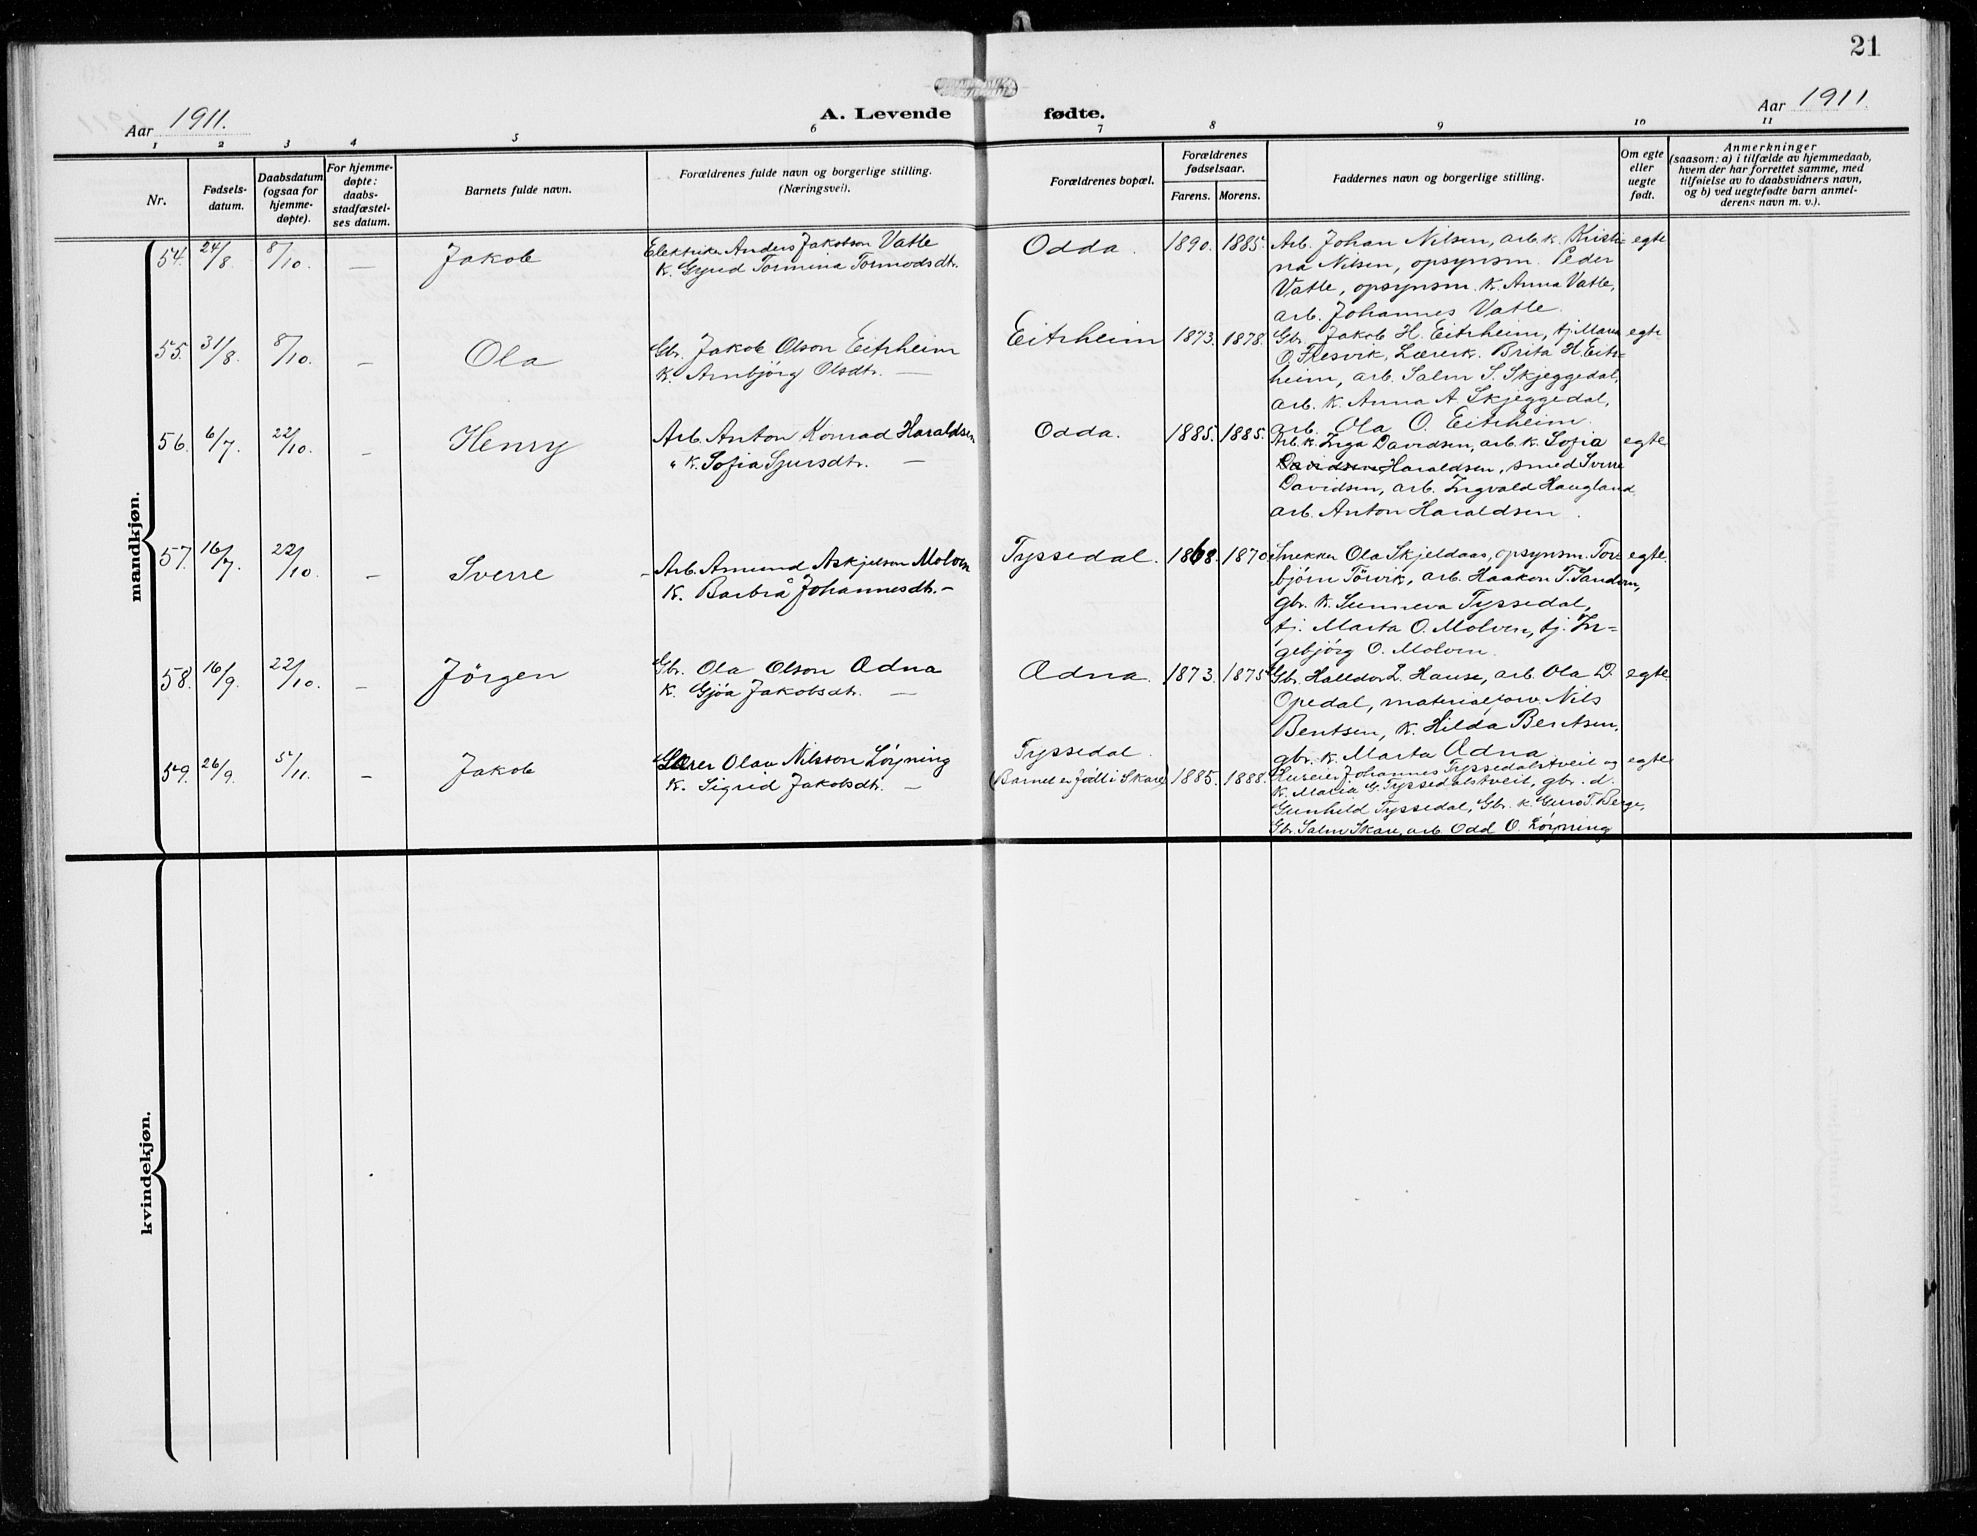 21
Aar 1911. A. Levende fødte. Aar 1911.
1 2 3 4 5 6 7 8 9 10 11
Nr.
Fødsels-
datum.
Daabsdatum
(ogsaa for
hjemme-
døpte).
For hjemme-
døpte:
daabs-
stadfæstel-
ses datum.
Barnets fulde navn.
Forældrenes fulde navn og borgerlige stilling.
(Næringsvei).
Forældrenes bopæl.
Forældrenes
fødselsaar.
Farens. Morens.
Faddernes navn og borgerlige stilling.
Om egte
eller
uegte
født.
Anmerkninger
(saasom: a) i tilfælde av hjemmedaab,
hvem der har forrettet samme, med
tilføielse av to daabsvidners navn,
og b) ved uegtefødte barn anmel-
derens navn m. v.).
mandkjøn.
54. 24/8 8/10. — Jakob
Elektriker Anders Jakobson Vatle
K. Gyrid Tormina Tormodsdtr.
Odda. 1890. 1885.
Arb. Johan Nilsen, arb. k. Kristi-
na Nilsen, opsynsm. Peder
Vatle, opsynsm. K. Anna Vatle,
arb. Johannes Vatle.
egte
55. 31/8. 8/10. — Ola
Gbr. Jakob Olson Eitrheim
K. Arnbjörg Olsdtr. —
Eitrheim 1873. 1878.
Gbr. Jakob H. Eitrheim, tj. Maria
O. Flesvik, Lærerk. Brita H. Eitr=
heim, arb. Salm S. Skjeggedal,
arb. K. Anna A. Skjeggedal,
arb. Ola O. Eitrheim.
egte
56. 6/7. 22/10. — Henry
Arb. Anton Konrad Haraldsen
" K. Sofia Sjursdtr. —
Odda. 1885. 1885.
Arb. k. Inga Davidsen, arb. K. Sofia
Davidsen Haraldsen, smed Sverre
Davidsen, arb. Ingvald Haugland,
arb. Anton Haraldsen.
egte
57. 16/7. 22/10. — Sverre
Arb. Amund Askjelson Molven
K. Barbrå Johannesdtr. —
Tyssedal. 1868. 1870
Snekker Ola Skjeldaas, opsynsm. Tor-
björn Törvik, arb. Haakon T. Sandven,
gbr. K. Sunneva Tyssedal,
tj. Marta O. Molven, tj. In=
gebjörg O. Molven.
egte
58. 16/9. 22/10. — Jörgen
Gbr. Ola Olson Ædna
K. Gjöa Jakobsdtr. —
Ædna. 1873. 1875.
Gbr. Halldor L. Hause, arb. Ola D.
Opedal, materialforv. Nils
Bentsen, K. Hilda Bentsen,
gbr. K. Marta Ædna
egte
59. 26/9. 5/11. — Jakob
Lærer Olav Nilsson Löyning
K. Sigrid Jakobsdtr. —
Tyssedal.
(Barnet er födt i Skare) 1885. 1888.
Johannes Tyssedalstveit og
K. Maria G. Tyssedalstveit, gbr. d.
Gunhild Tyssedal, Gbr. K. Guro T. Berge,
Gbr. Salm. Skare, arb. Odd O. Löyning
egte
kvindekjøn.